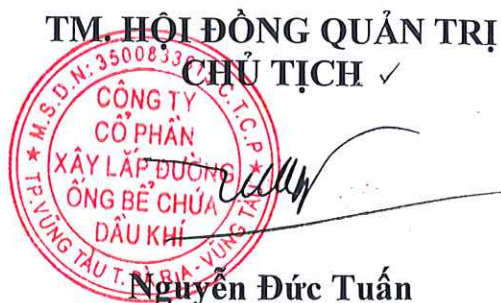 TM. HỘI ĐỒNG QUẢN TRỊ
CHỦ TỊCH
M.S.D.N: C.T.C.P
CÔNG TY
CỔ PHẦN
XÂY LẮP ĐƯỜNG
ỐNG BỂ CHỨA
DẦU KHÍ
TP.VŨNG TÀU T. BÀ RỊA - VŨNG TÀU
Nguyễn Đức Tuấn